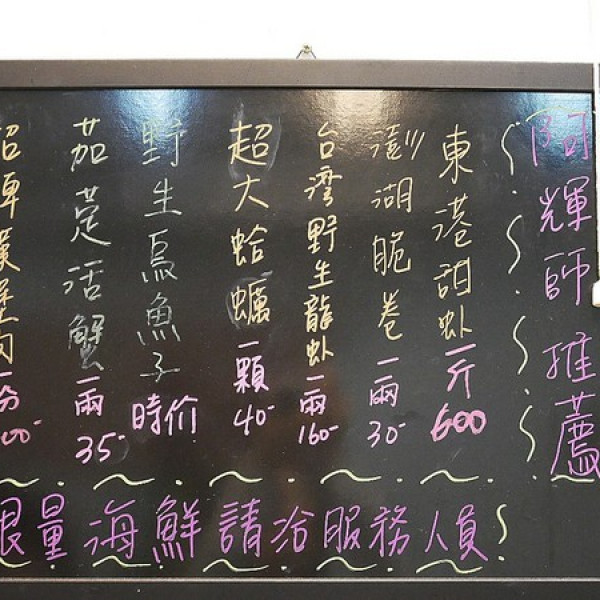 阿輝師推薦
東港甜虾一斤600
澎湖脆卷一兩30-
台灣野生龍虾一兩160-
超大蛤蠣一顆40-
野生烏魚子時价
茄萣活蟹一兩35-
招牌漢堡肉一份
限量海鮮請洽服務人員